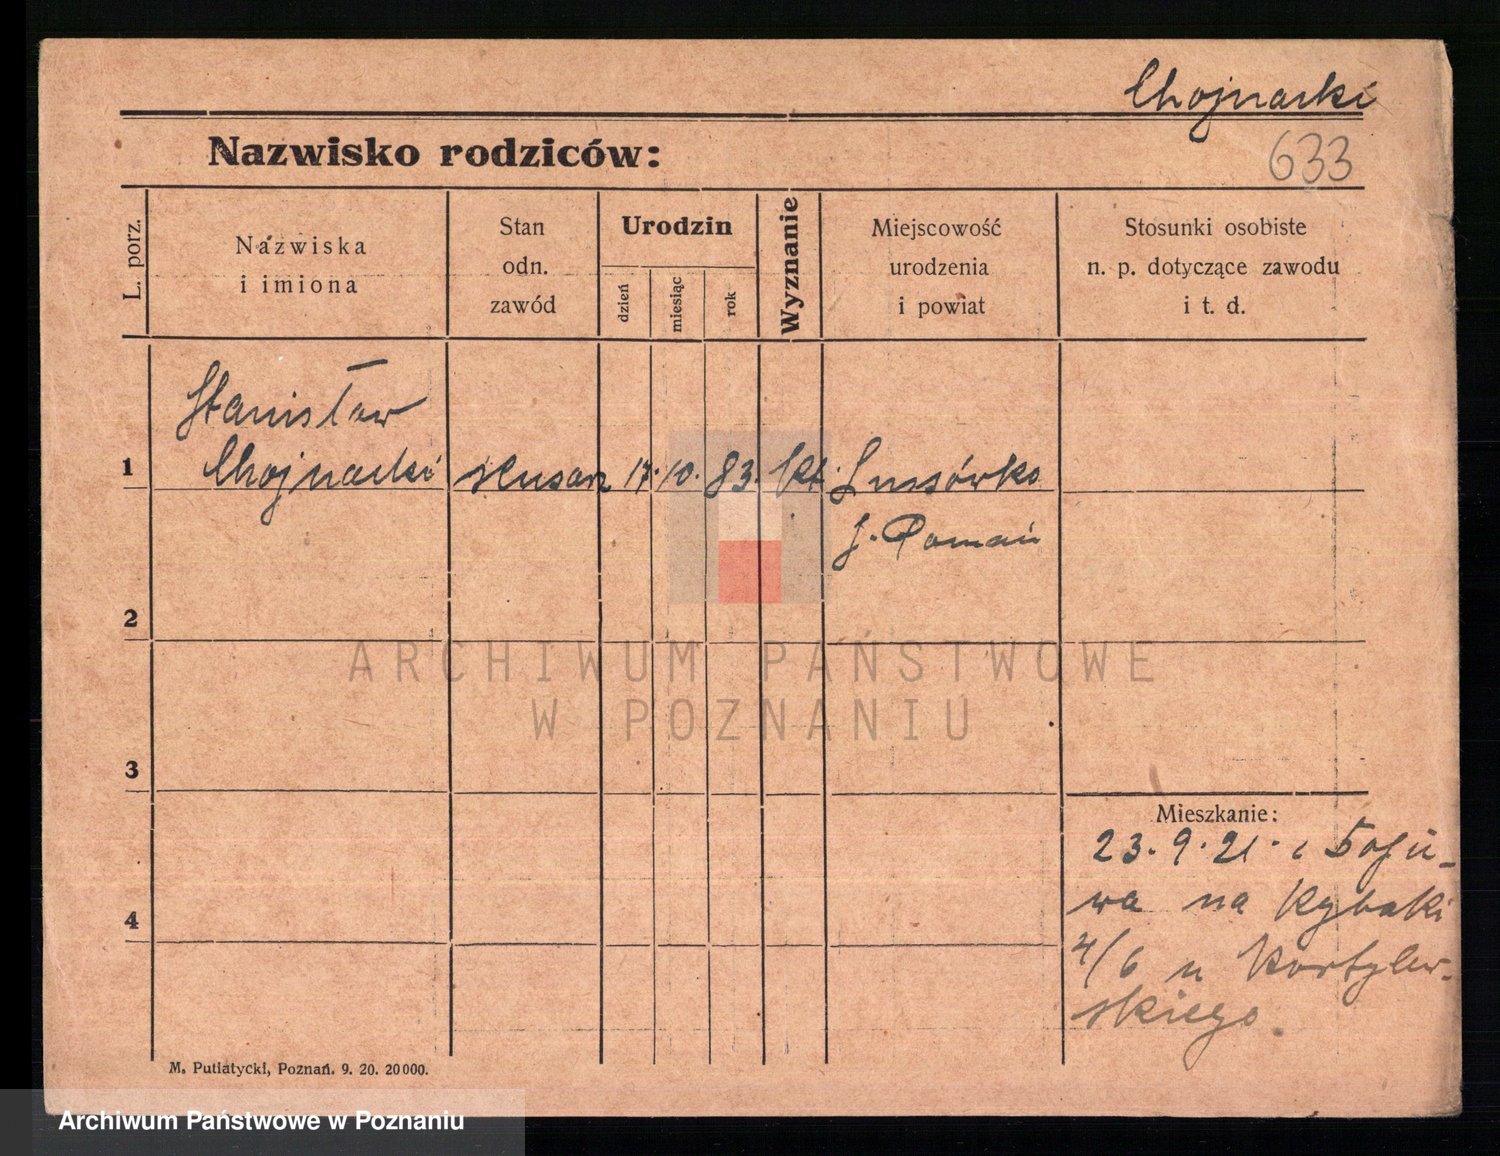 Chojnacki
Nazwisko rodziców:
633
L. porz.
Nazwiska
i imiona
Stan
odn.
zawód
Urodzin
dzień
miesiąc
rok
Wyznanie
Miejscowość
urodzenia
i powiat
Stosunki osobiste
n. p. dotyczące zawodu
i t. d.
Stanisław
1 Chojnacki ślusarz 17. 10. 83. kt.
p. Poznań
2
ARCHIWUM PAŃSTWOWE
W POZNANIU
3
Mieszkanie:
23. 9. 21.
4 na Rybaki
4/6 u Kortylew-
skiego.
M. Putiatycki, Poznań. 9. 20. 20000.
Archiwum Państwowe w Poznaniu